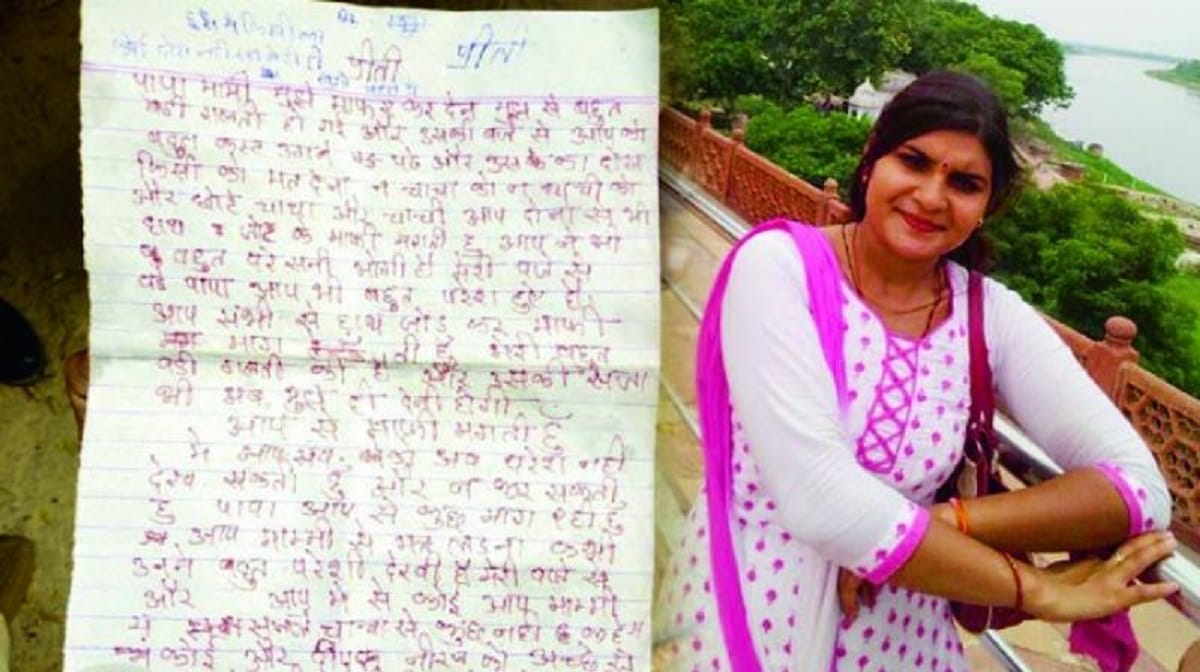 इसमे किसी का
कोई दोष नही
प्रीती प्रीती
पापा मामी मुझे माफ कर देना मुझ से बहुत
बडी गलती हो गई और उसकी वजे से आप को
बहुत कस्ट उठाने पड और इस का दोस
किसी को मत देना न चाचा को न चाची को
और छोटे चाचा और चाची आप दोनो से भी
हाथ जोड के माफी मागती हु आप ने भी
बहुत परेसानी मेरी वजे से
बडे पापा आप भी बहुत परेशा हुए है
आप सभी से हाथ जोड कर माफी
माग ती हुँ मेरी बहुत
बडी गलती की है और इसकी सजा
भी अब मुझे ही देनी होगी
आप से माफी मगती हुँ
मे आप सब को अब परेशा नही
देख सकती हु और न कर सकती
हु पापा आप से कुछ माग रही हु
आप माम्मी से मत लडना कभी
उसने बहुत परेशी देखी है मेरी वजे से
और आप मे से कोई आप माम्मी
चाचा से कुछ नही कहेगा
कोई और दीपक नीरज को अच्छे से